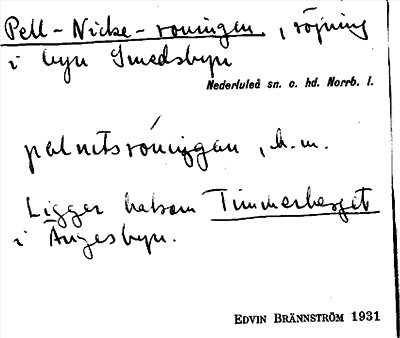 Pell-Nicke-roningen, röjning
i byn Smedsbyn
Nederluleå sn. o. hd. Norrb. l.
, b.m.
Ligger bakom Timmerberget
i Ängesbyn.
EDVIN BRÄNNSTRÖM 1931